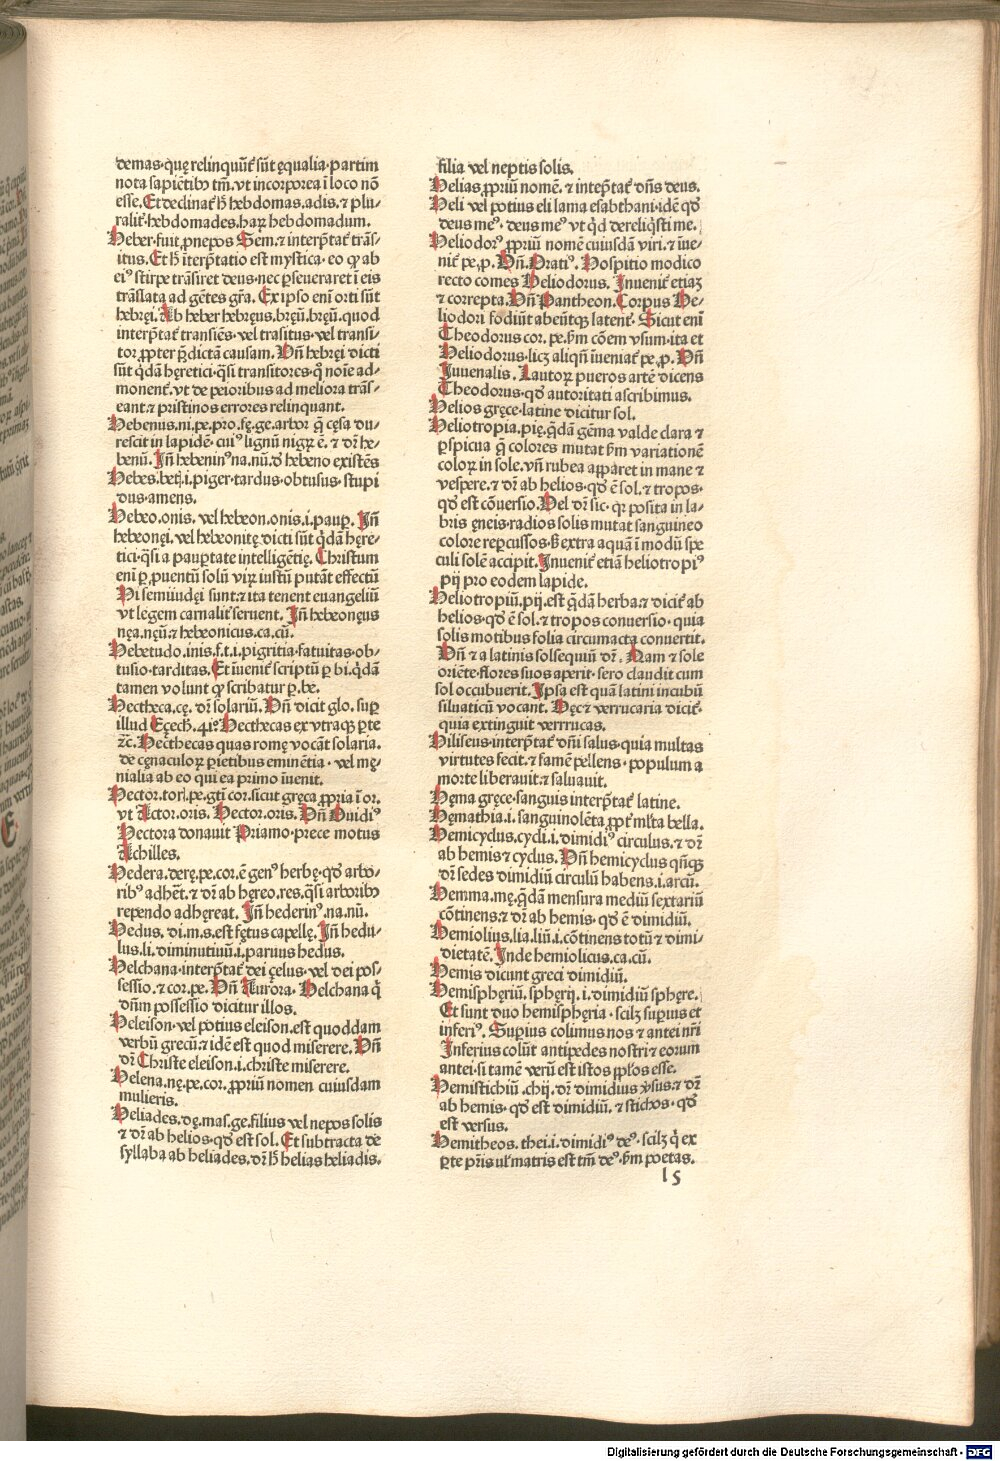 demas·quę relinquūt᷑ sūt ęqualia·partim
nota sapiētibꝰ tm̄.vt incorporea ī loco nō
esse.Et declinat᷑ h̄ hebdomas.adis.⁊ plu⸗
ralit᷑·hebdomades.haꝝ hebdomadum.
Heber·fuit ꝓnepos Sem.⁊ interp̄tat᷑ trās⸗
itus.Et h̄ īterp̄tatio est mystica·eo ꝙ ab
eiꝰ stirpe trāsiret deus·nec ꝑseueraret ī eis
trāslata ad gētes grā. Ex ipso eni orti sūt
hebręi. Ab heber hebręus.bręū.bręū.quod
interp̄tat᷑ transiēs·vel trāsitus·vel transi⸗
tor ꝓpter p̄dictā causam. Vn̄ hebręi dicti
sūt q̄dā hęretici·q̄si transitores·q̄ noīe ad⸗
monent᷑.vt de peioribus ad meliora trās⸗
eant.⁊ pristinos errores relinquant.
Hebenus.ni.pe.pro.fę.ge.arbor q̄ cęsa du⸗
rescit in lapidē·cuiꝰ lignū nigꝝ ē. ⁊ dr̄ he⸗
benū. Jn̄ hebeninꝰ na.nū.d̄ hebeno existēs
Hebes.betꝭ.i.piger·tardus·obtusus·stupi
dus·amens.
Hebeo.onis. vel hebeon.onis.i.pauꝑ. Jn̄
hebeonęi.vel hebeonitę dicti sūt q̄dā hęre⸗
tici·q̄si a pauꝑtate intelligētię. Christum
eni ꝑ ꝓuentū solū viꝝ iustū putāt effectū
Hi semiiudęi sunt:⁊ ita tenent euangeliū
vt legem carnalit᷑ seruent. Jn̄ hebeonęus
nęa.nęū.⁊ hebeonicus.ca.cū.
Hebetudo.inis.f.t.i.pigritia·fatuitas·ob⸗
tusio·tarditas.Et īuenit᷑ scriptū ꝑ bi.q̄dā
tamen volunt ꝙ scribatur ꝑ.be.
Hectheca.cę. dr̄ solariū. Vn̄ dicit glo. suꝑ
illud Eęch. 41º Hecthecas ex vtraqꝫ ꝑte
⁊c. Hecthecas quas romę vocāt solaria.
de cęnaculoꝝ ꝑietibus eminētia·vel mę⸗
nialia ab eo qui ea primo īuenit.
Hector.torꝭ.pe.gti cor.sicut gręca ꝓpria ī or.
vt Actor.oris. Hector.oris. Vn̄ Ouidiꝰ
Hectora donauit Priamo·prece motus
Achilles.
Hedera.derę.pe.cor.ē genꝰ herbę·qd̄ arbo⸗
ribꝰ adhēt.⁊ dr̄ ab hęreo.res.q̄si arboribꝰ
rependo adhęreat. Jn̄ hederinꝰ.na.nū.
Hedus. di.m.s.est fętus capellę. Jn̄ hedu⸗
lus.li.diminutiuū.i.paruus hedus.
Helchana·interp̄tat᷑ dei çelus·vel dei pos⸗
sessio.⁊ cor.pe. Vn̄ Aurora. Helchana q̄
dn̄m possessio dicitur illos.
Heleison·vel potius eleison.est quoddam
verbū grecū:⁊ idē est quod miserere. Vn̄
dr̄ Christe eleison.i.christe miserere.
Helena.nę.pe.cor. ꝓpriū nomen cuiusdam
mulieris.
Heliades.dę.mas.ge.filius vel nepos solis
⁊ dr̄ ab helios·qd̄ est sol. Et subtracta de
syllaba ab heliades.dr̄ h̄ helias heliadis.
filia vel neptis solis.
Helias.ꝓpriū nomē. ⁊ interp̄tat᷑ dn̄s deus.
Heli vel potius eli lama esabthani·idē qd̄
deus meꝰ. deus meꝰ vt qd̄ dereliq̄sti me.
Heliodorꝰ ꝓpriū nomē cuiusdā viri. ⁊ iue⸗
nit᷑ pe.ꝓ. Vn̄. Oratiꝰ. Hospitio modico
recto comes Heliodorus. Jnuenit᷑ etiaꝫ
⁊ correpta. Vn̄ Pantheon. Corpus He⸗
liodori fodiūt abeūtqꝫ latent᷑. Sicut eni
Theodorus cor. pe. ẜm cōem vsum·ita et
Heliodorus·licꝫ aliqn̄ iueniat᷑ pe.ꝓ. Vn̄
Juuenalis. Lautoꝝ pueros artē dicens
Theodorus·qd̄ autoritati ascribimus.
Helios gręce·latine dicitur sol.
Heliotropia.pię.q̄dā gēma valde clara ⁊
ꝑspicua q̄ colores mutat ẜm variationē
coloꝝ in sole.vn̄ rubea apparet in mane ⁊
vespere.⁊ dr̄ ab helios·qd̄ ē sol.⁊ tropos·
qd̄ est cōuersio. Vel dr̄ sic·qꝛ posita in la⸗
bris ęneis·radios solis mutat sanguineo
colore repercussos.s̄ extra aquā ī modū spe
culi solē accipit. Jnuenit᷑ etiā heliotropiꝰ
pij pro eodem lapide.
Heliotropiū.pij.est q̄dā herba:⁊ dicit᷑ ab
helios·qd̄ ē sol.⁊ tropos conuersio·quia
solis motibus folia circumacta conuertit.
Vn̄ ⁊ a latinis solsequiū dr̄. Nam ⁊ sole
oriēte·flores suos aperit·sero claudit cum
sol occubuerit. Jpsa est quā latini incubū
siluaticū vocant. Hęc ⁊ verrucaria dicit᷑·
quia extinguit verrrucas.
Hiliseus·interp̄tat᷑ dn̄i salus·quia multas
virtutes fecit.⁊ famē pellens·populum a
morte liberauit.⁊ saluauit.
Hęma gręce·sanguis interp̄tat᷑ latine.
Hęmathia.i.sanguinolēta ꝓpt᷑ ml̄ta bella.
Hemicyclus.cycli.i.dimidiꝰ circulus.⁊ dr̄
ab hemis ⁊ cyclus. Vn̄ hemicyclus qn̄qꝫ
dr̄ sedes dimidiū circulū habens.i.arcū.
Hemma.mę.q̄dā mensura mediū sextariū
cōtinens.⁊ dr̄ ab hemis·qd̄ ē dimidiū.
Hemiolius.lia.liū.i.cōtinens totū ⁊ dimi⸗
dietatē. Jnde hemiolicus.ca.cū.
Hemis dicunt greci dimidiū.
Hemispheriū. spherij.i.dimidiū sphęre.
Et sunt duo hemispheria·scilꝫ suꝑius et
inferiꝰ. Suꝑius colimus nos ⁊ antei nr̄i
Jnferius colūt antipedes nostri ⁊ eorum
antei·si tamē verū est istos ppl̄os esse.
Hemistichiū.chij.dr̄ dimidius v̄sus.⁊ dr̄
ab hemis·qd̄ est dimidiū. ⁊ stichos·qd̄
est versus.
Hemitheos.thei.i.dimidiꝰ deꝰ·scilꝫ q̄ ex
ꝑte pr̄is ul̄ matris est tm̄ deꝰ·ẜm poetas.
l 5
Digitalisierung gefördert durch die Deutsche Forschungsgemeinschaft - DFG